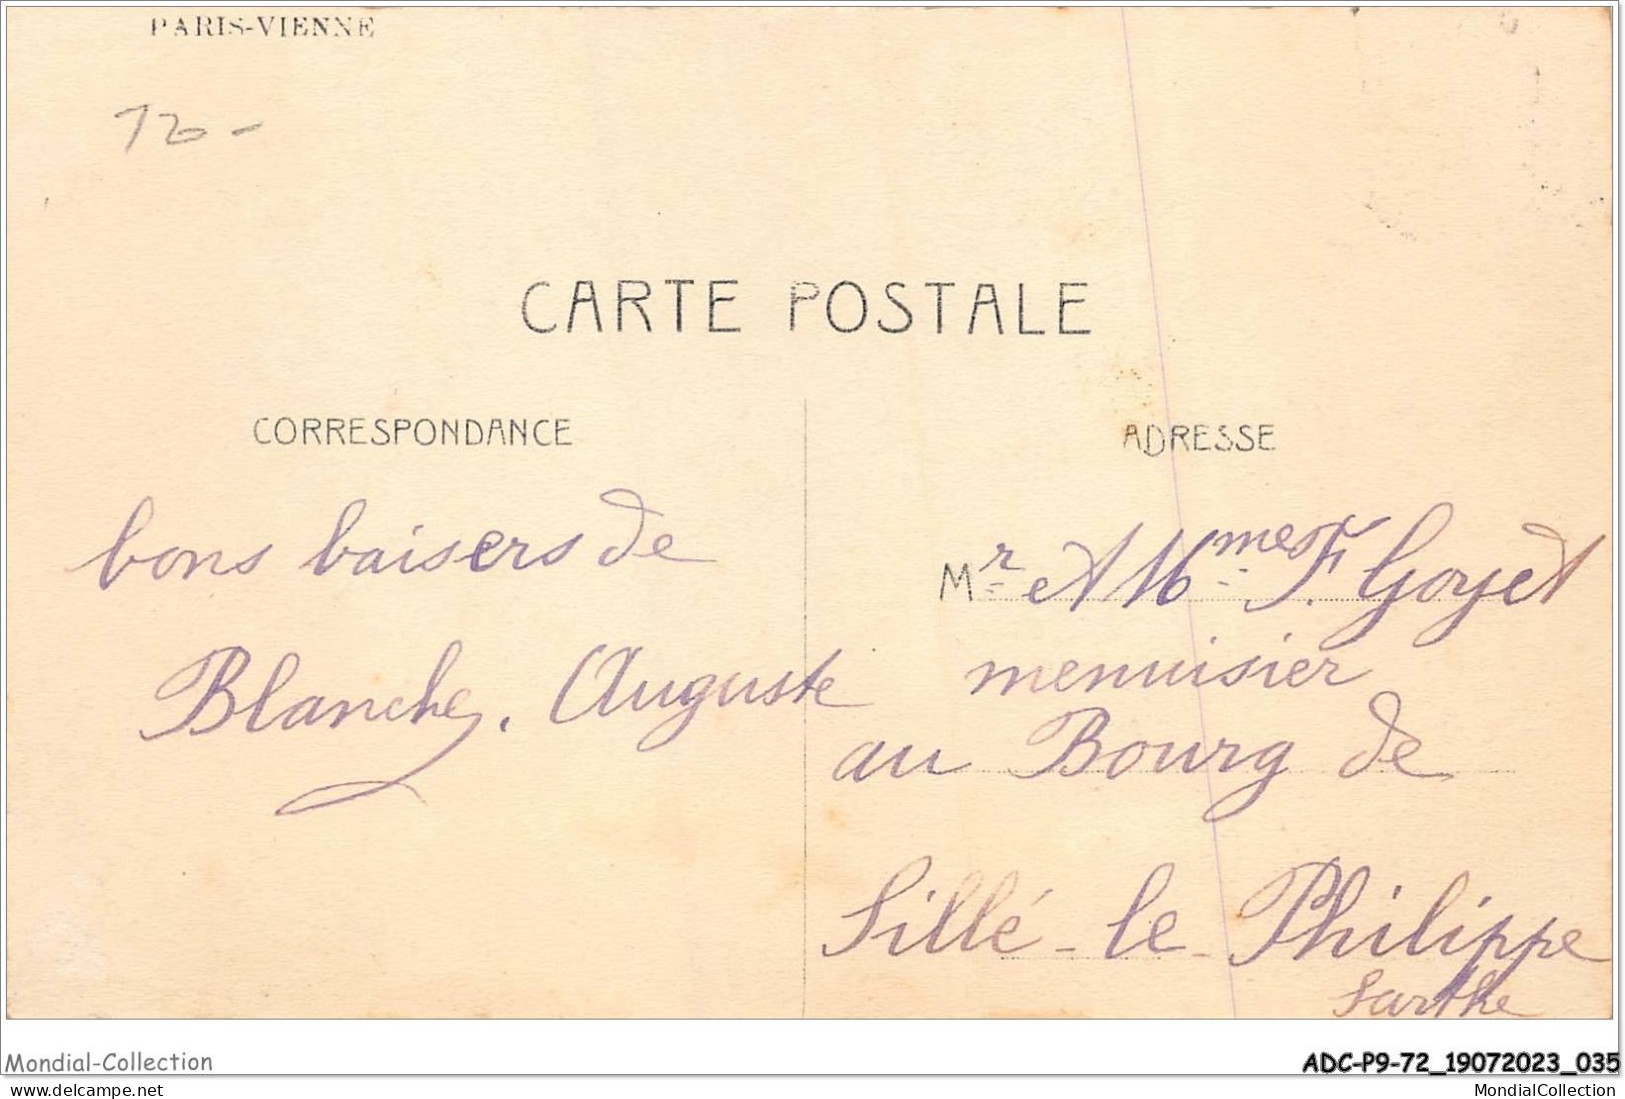 PARIS-VIENNE
CARTE POSTALE
CORRESPONDANCE
bons baisers de
Blanche, Auguste
ADRESSE
Mr et Mmes F. Goyet
menuisier
au Bourg de
Sillé-le-Philippe
Sarthe
Mondial-Collection
ADC-P9-72_19072023_035
www.delcampe.net
MondialCollection